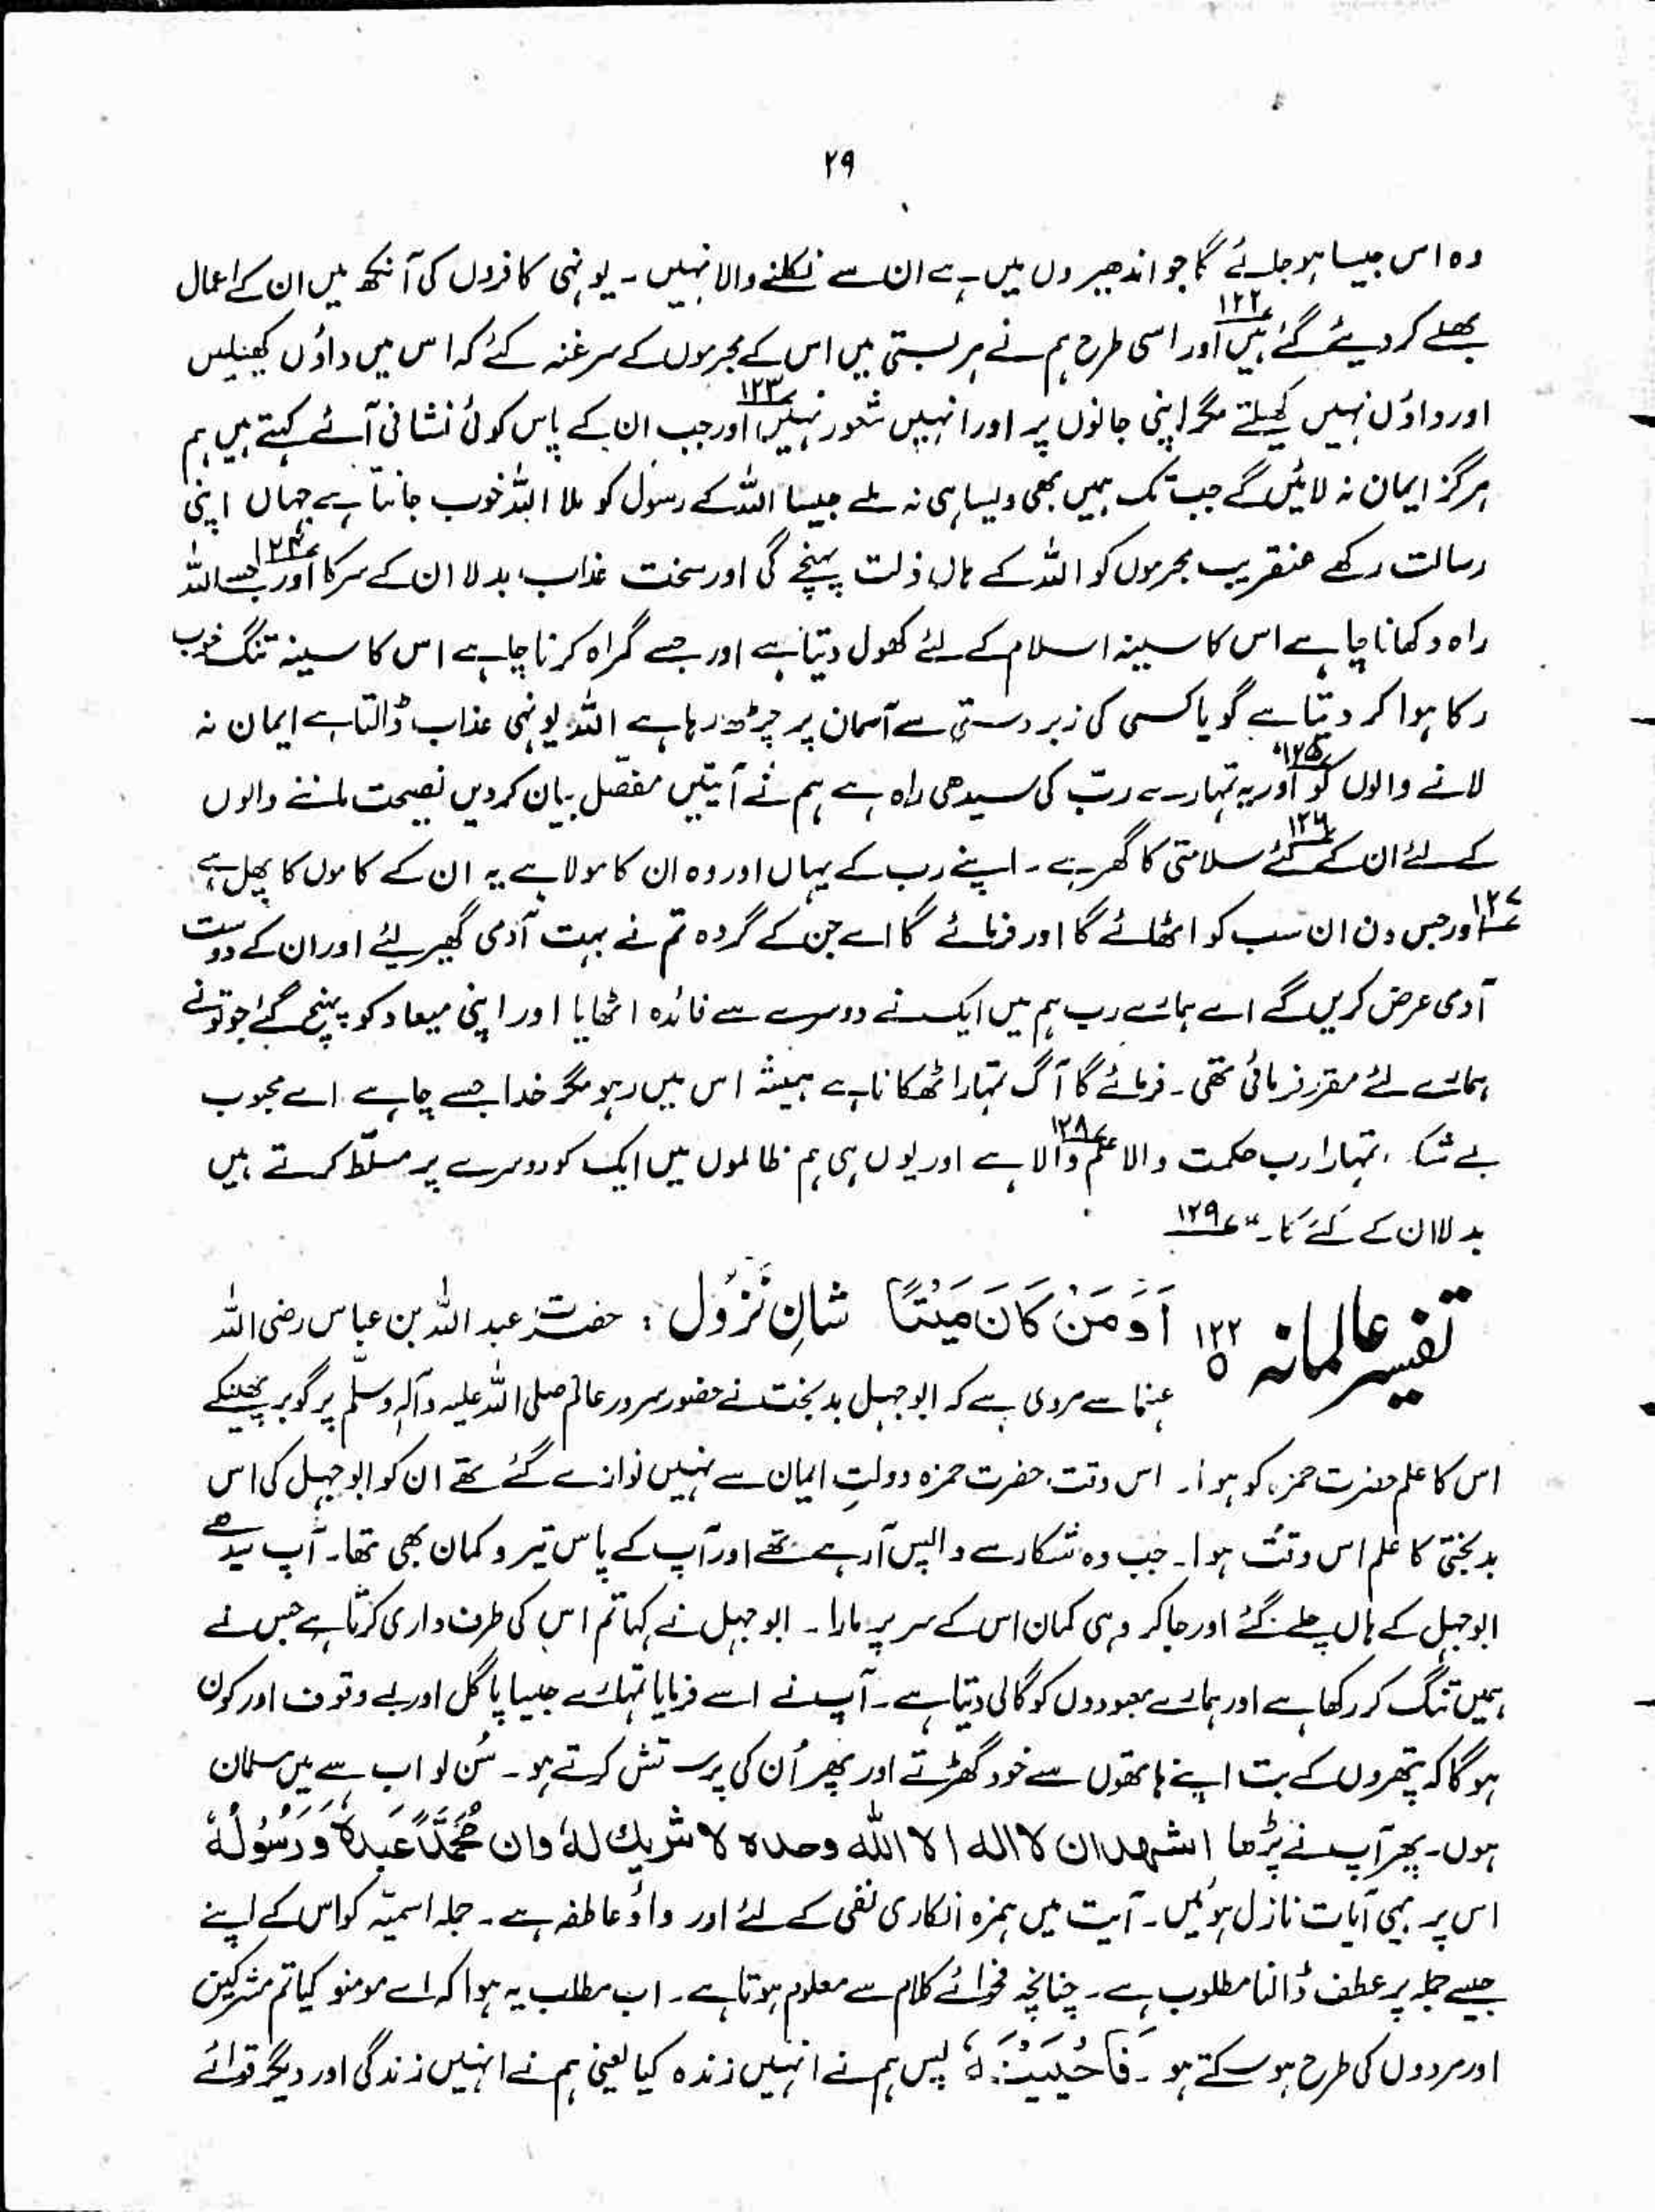 ۲۹
وہ اس جیسا ہو جائے گا جو اندھیروں میں ہے ان سے نکلنے والا نہیں۔ یونہی کافروں کی آنکھ میں ان کے اعمال
بھلے کر دیئے گئے ہیں ۱۲۲؎ اور اسی طرح ہم نے ہر بستی میں اس کے مجرموں کے سرغنہ کئے کہ اس میں داؤں کھیلیں
اور داؤں نہیں کھیلتے مگر اپنی جانوں پر اور انہیں شعور نہیں ۱۲۳؎ اور جب ان کے پاس کوئی نشانی آئے کہتے ہیں ہم
ہرگز ایمان نہ لائیں گے جب تک ہمیں بھی ویسا ہی نہ ملے جیسا اللہ کے رسول کو ملا اللہ خوب جانتا ہے جہاں اپنی
رسالت رکھے عنقریب مجرموں کو اللہ کے ہاں ذلت پہنچے گی اور سخت عذاب، بدلا ان کے مکر کا ۱۲۴؎ اور جسے اللہ
راہ دکھانا چاہے اس کا سینہ اسلام کے لئے کھول دیتا ہے اور جسے گمراہ کرنا چاہے اس کا سینہ تنگ خوب
رکا ہوا کر دیتا ہے گویا کسی کی زبردستی سے آسمان پر چڑھ رہا ہے اللہ یونہی عذاب ڈالتا ہے ایمان نہ
لانے والوں کو ۱۲۵؎ اور یہ تمہارے ربّ کی سیدھی راہ ہے ہم نے آیتیں مفصّل بیان کر دیں نصیحت ماننے والوں
کے لئے ۱۲۶؎ ان کے لئے سلامتی کا گھر ہے۔ اپنے رب کے یہاں اور وہ ان کا مولا ہے یہ ان کے کاموں کا پھل ہے
۱۲۷؎ اور جس دن ان سب کو اٹھائے گا اور فرمائے گا اے جن کے گروہ تم نے بہت آدمی گھیر لئے اور ان کے دوست
آدمی عرض کریں گے اے ہمارے رب ہم میں ایک نے دوسرے سے فائدہ اٹھایا اور اپنی میعاد کو پہنچ گئے جو تو نے
ہمارے لئے مقرر فرمائی تھی۔ فرمائے گا آگ تمہارا ٹھکانا ہے ہمیشہ اس میں رہو مگر خدا جسے چاہے اے محبوب
بے شک تمہارا رب حکمت والا علم والا ہے ۱۲۸؎ اور یوں ہی ہم ظالموں میں ایک کو دوسرے پر مسلّط کرتے ہیں
بدلا ان کے کئے کا۔" ۱۲۹؎
تفسیر عالمانہ ۱۲۲ اَوَ مَنْ كَانَ مَيْتًا شانِ نزول : حضرت عبد اللہ بن عباس رضی اللہ
عنہما سے مروی ہے کہ ابو جہل بدبخت نے حضور سرور عالم صلی اللہ علیہ وآلہٖ وسلّم پر گوبر پھینکے
اس کا علم حضرت حمزہ کو ہوا۔ اس وقت حضرت حمزہ دولتِ ایمان سے نہیں نوازے گئے تھے ان کو ابو جہل کی اس
بدبختی کا علم اس وقت ہوا۔ جب وہ شکار سے واپس آ رہے تھے اور آپ کے پاس تیر و کمان بھی تھا۔ آپ سیدھے
ابو جہل کے ہاں چلے گئے اور جا کر وہی کمان اس کے سر پر مارا۔ ابو جہل نے کہا تم اس کی طرف داری کرتا ہے جس نے
ہمیں تنگ کر رکھا ہے اور ہمارے معبودوں کو گالی دیتا ہے۔ آپ نے اسے فرمایا تمہارے جیسا پاگل اور بے وقوف اور کون
ہوگا کہ پتھروں کے بت اپنے ہاتھوں سے خود گھڑتے اور پھر اُن کی پرستش کرتے ہو۔ سُن لو اب سے میں مسلمان
ہوں۔ پھر آپ نے پڑھا اشهد ان لا اله الا الله وحده لا شريك لهٗ وان مُحَمَّدًا عَبدهٗ وَرَسُوْلُهٗ
اس پر یہی آیات نازل ہوئیں۔ آیت میں ہمزہ انکاری نفی کے لئے اور واؤ عاطفہ ہے۔ جملہ اسمیّہ کو اس کے اپنے
جیسے جملہ پر عطف ڈالنا مطلوب ہے۔ چنانچہ فحوائے کلام سے معلوم ہوتا ہے۔ اب مطلب یہ ہوا کہ اے مومنو کیا تم مشرکین
اور مردوں کی طرح ہو سکتے ہو۔ فَاَحْيَيْنٰهُ پس ہم نے انہیں زندہ کیا یعنی ہم نے انہیں زندگی اور دیگر قوائے